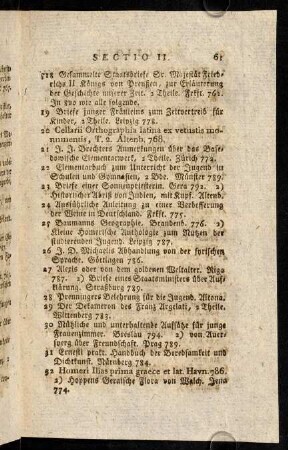 SECTIO II. 61
518 Gesammelte Staatsbriefe Sr. Majestät Fried-
richs II Königs von Preußen, zur Erläuterung
der Geschichte unserer Zeit. 2 Theile. Frkft. 762.
In 8vo wie alle folgende.
19 Briefe junger Fräuleins zum Zeitvertreib für
Kinder, 2 Theile. Leipzig 778.
20 Cellarii Orthographia latina ex vetustis mo-
numentis, T. 2. Altenb, 768.
21 J. J. Bechters Anmerkungen über das Base-
dowische Elementarwerk, 2 Theile, Zürich 774.
22 Elementarbuch zum Unterricht der Jugend in
Schulen und Gymnasien, 2 Bde. Münster 789.
23 Briefe einer Sonnenpriesterin. Gera 792. 2)
Historischer Abriß von Indien, mit Kupf. Altenb.
24 Ausführliche Anleitung zu einer Verbesserung
der Weine in Deutschland. Frkft. 775.
25 Baumanns Geographie. Brandenb. 776. 2)
Kleine Homerische Anthologie zum Nutzen der
studierenden Jugend. Leipzig 787.
26 J. D. Michaelis Abhandlung von der syrischen
Sprache. Göttingen 786.
27 Alexis oder von dem goldenen Weltalter. Riga
787. 2) Briefe eines Staatsministers über Auf-
klärung. Straßburg 789.
28 Prenningers Belehrung für die Jugend. Altona.
29 Der Dekameron des Franz Argelati, 2 Theile.
Wittenberg 783.
30 Nützliche und unterhaltende Aufsätze für junge
Frauenzimmer. Breslau 794. 2) von Auers-
perg über Freundschaft. Prag 789.
31 Ernesti prakt. Handbuch der Beredsamkeit und
Dichtkunst. Nürnberg 784.
32 Homeri Ilias prima graece et lat. Havn. 786.
2) Hoppens Geraische Flora von Walch. Jena
774.